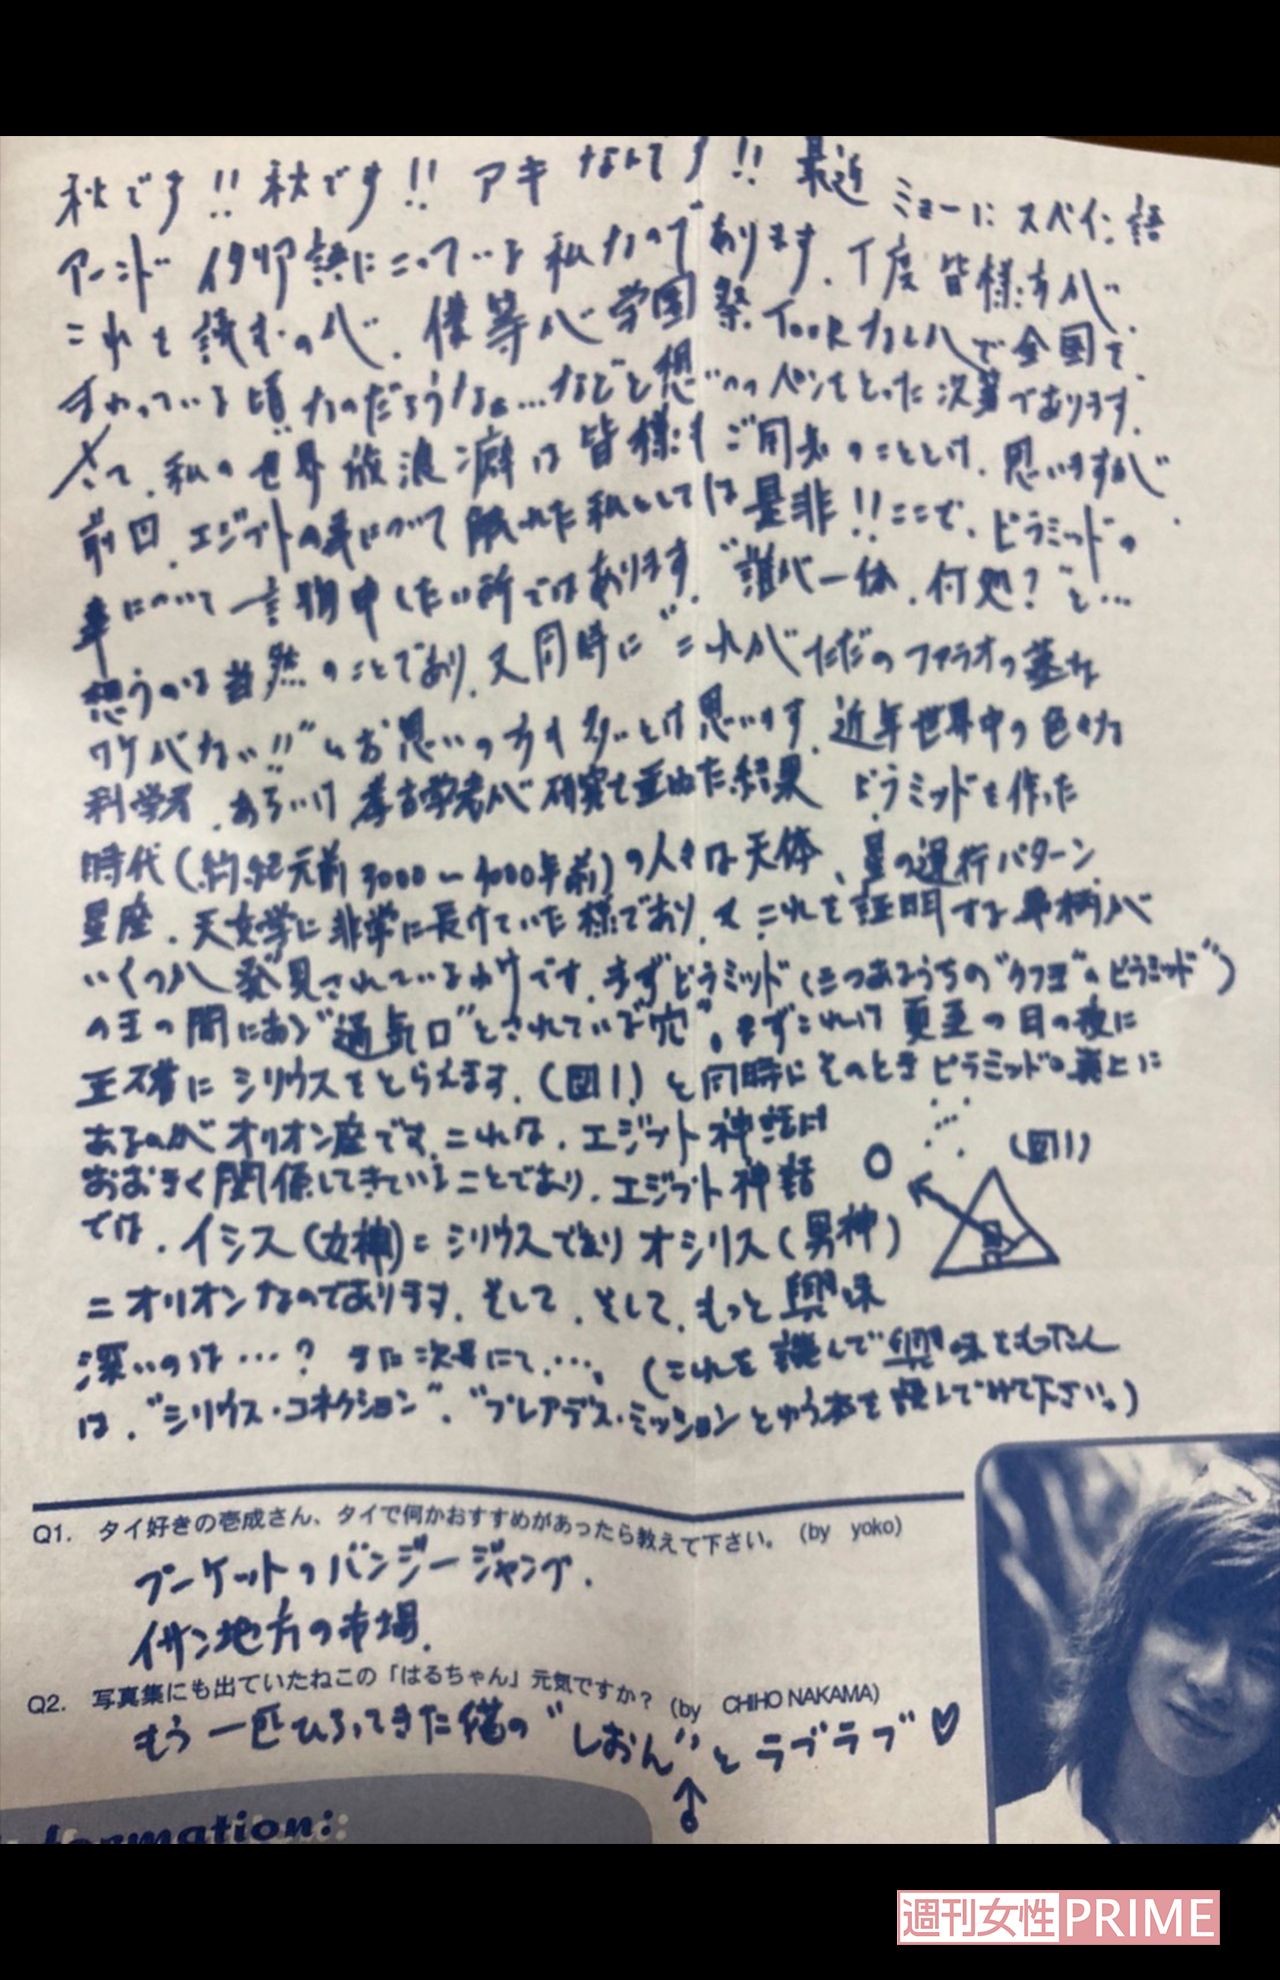 秋です!! 秋です!! アキ なんです!! 最近 ミョーに スペイン語
アーンド イタリア語にこっている 私なのであります. 丁度 皆様が
これを読むのが、僕等が学園祭 TOURなんかで全国を
まわっている頃なのだろうなぁ…などと想いつつペンをとった次第であります.
さて、私の世界放浪癖は皆様もご周知のこととは、思いますが
前回、エジプトの事について触れた私としては是非!! ここで、ピラミッドの
事について一言物申したい所ではあります. “誰が一体、何処?”と…
想うのは当然のことであり、又同時に“これがただのファラオの墓な
ワケがない!!”とお思いの方も多いとは思います. 近年世界中の色々な
科学者、あるいは考古学者が研究を重ねた結果 ピラミッドを作った
時代(約紀元前3000〜4000年前)の人々は天体、星の運行パターン、
星座、天文学に非常に長けていた様であり、又これを証明する事柄が
いくつか発見されているわけです. まずピラミッド(三つあるうちの“クフ王”のピラミッド)
の王の間にある“通気口”とされている“穴”。まずこれは夏至の日の夜に
正確にシリウスをとらえます. (図1) と同時にそのときピラミッドの真上に
あるのがオリオン座です. これは、エジプト神話に
おおきく関係してきていることであり、エジプト神話
では、イシス(女神)=シリウスであり オシリス(男神)
=オリオンなのであります. そして、そして、もっと興味
深いのは…? また次号にて….  (これを読んで興味をもったん
は、“シリウス・コネクション”、“プレアデス・ミッション”とゆう本を読んでみて下さい。)
(図1)
Q1. タイ好きの壱成さん、タイで何かおすすめがあったら教えて下さい。(by yoko)
プーケットのバンジージャンプ.
イサン地方の市場.
Q2. 写真集にも出ていたねこの「はるちゃん」元気ですか? (by CHIHO NAKAMA)
もう一匹ひろってきた猫の“しおん”とラブラブ♡
formation:
週刊女性PRIME